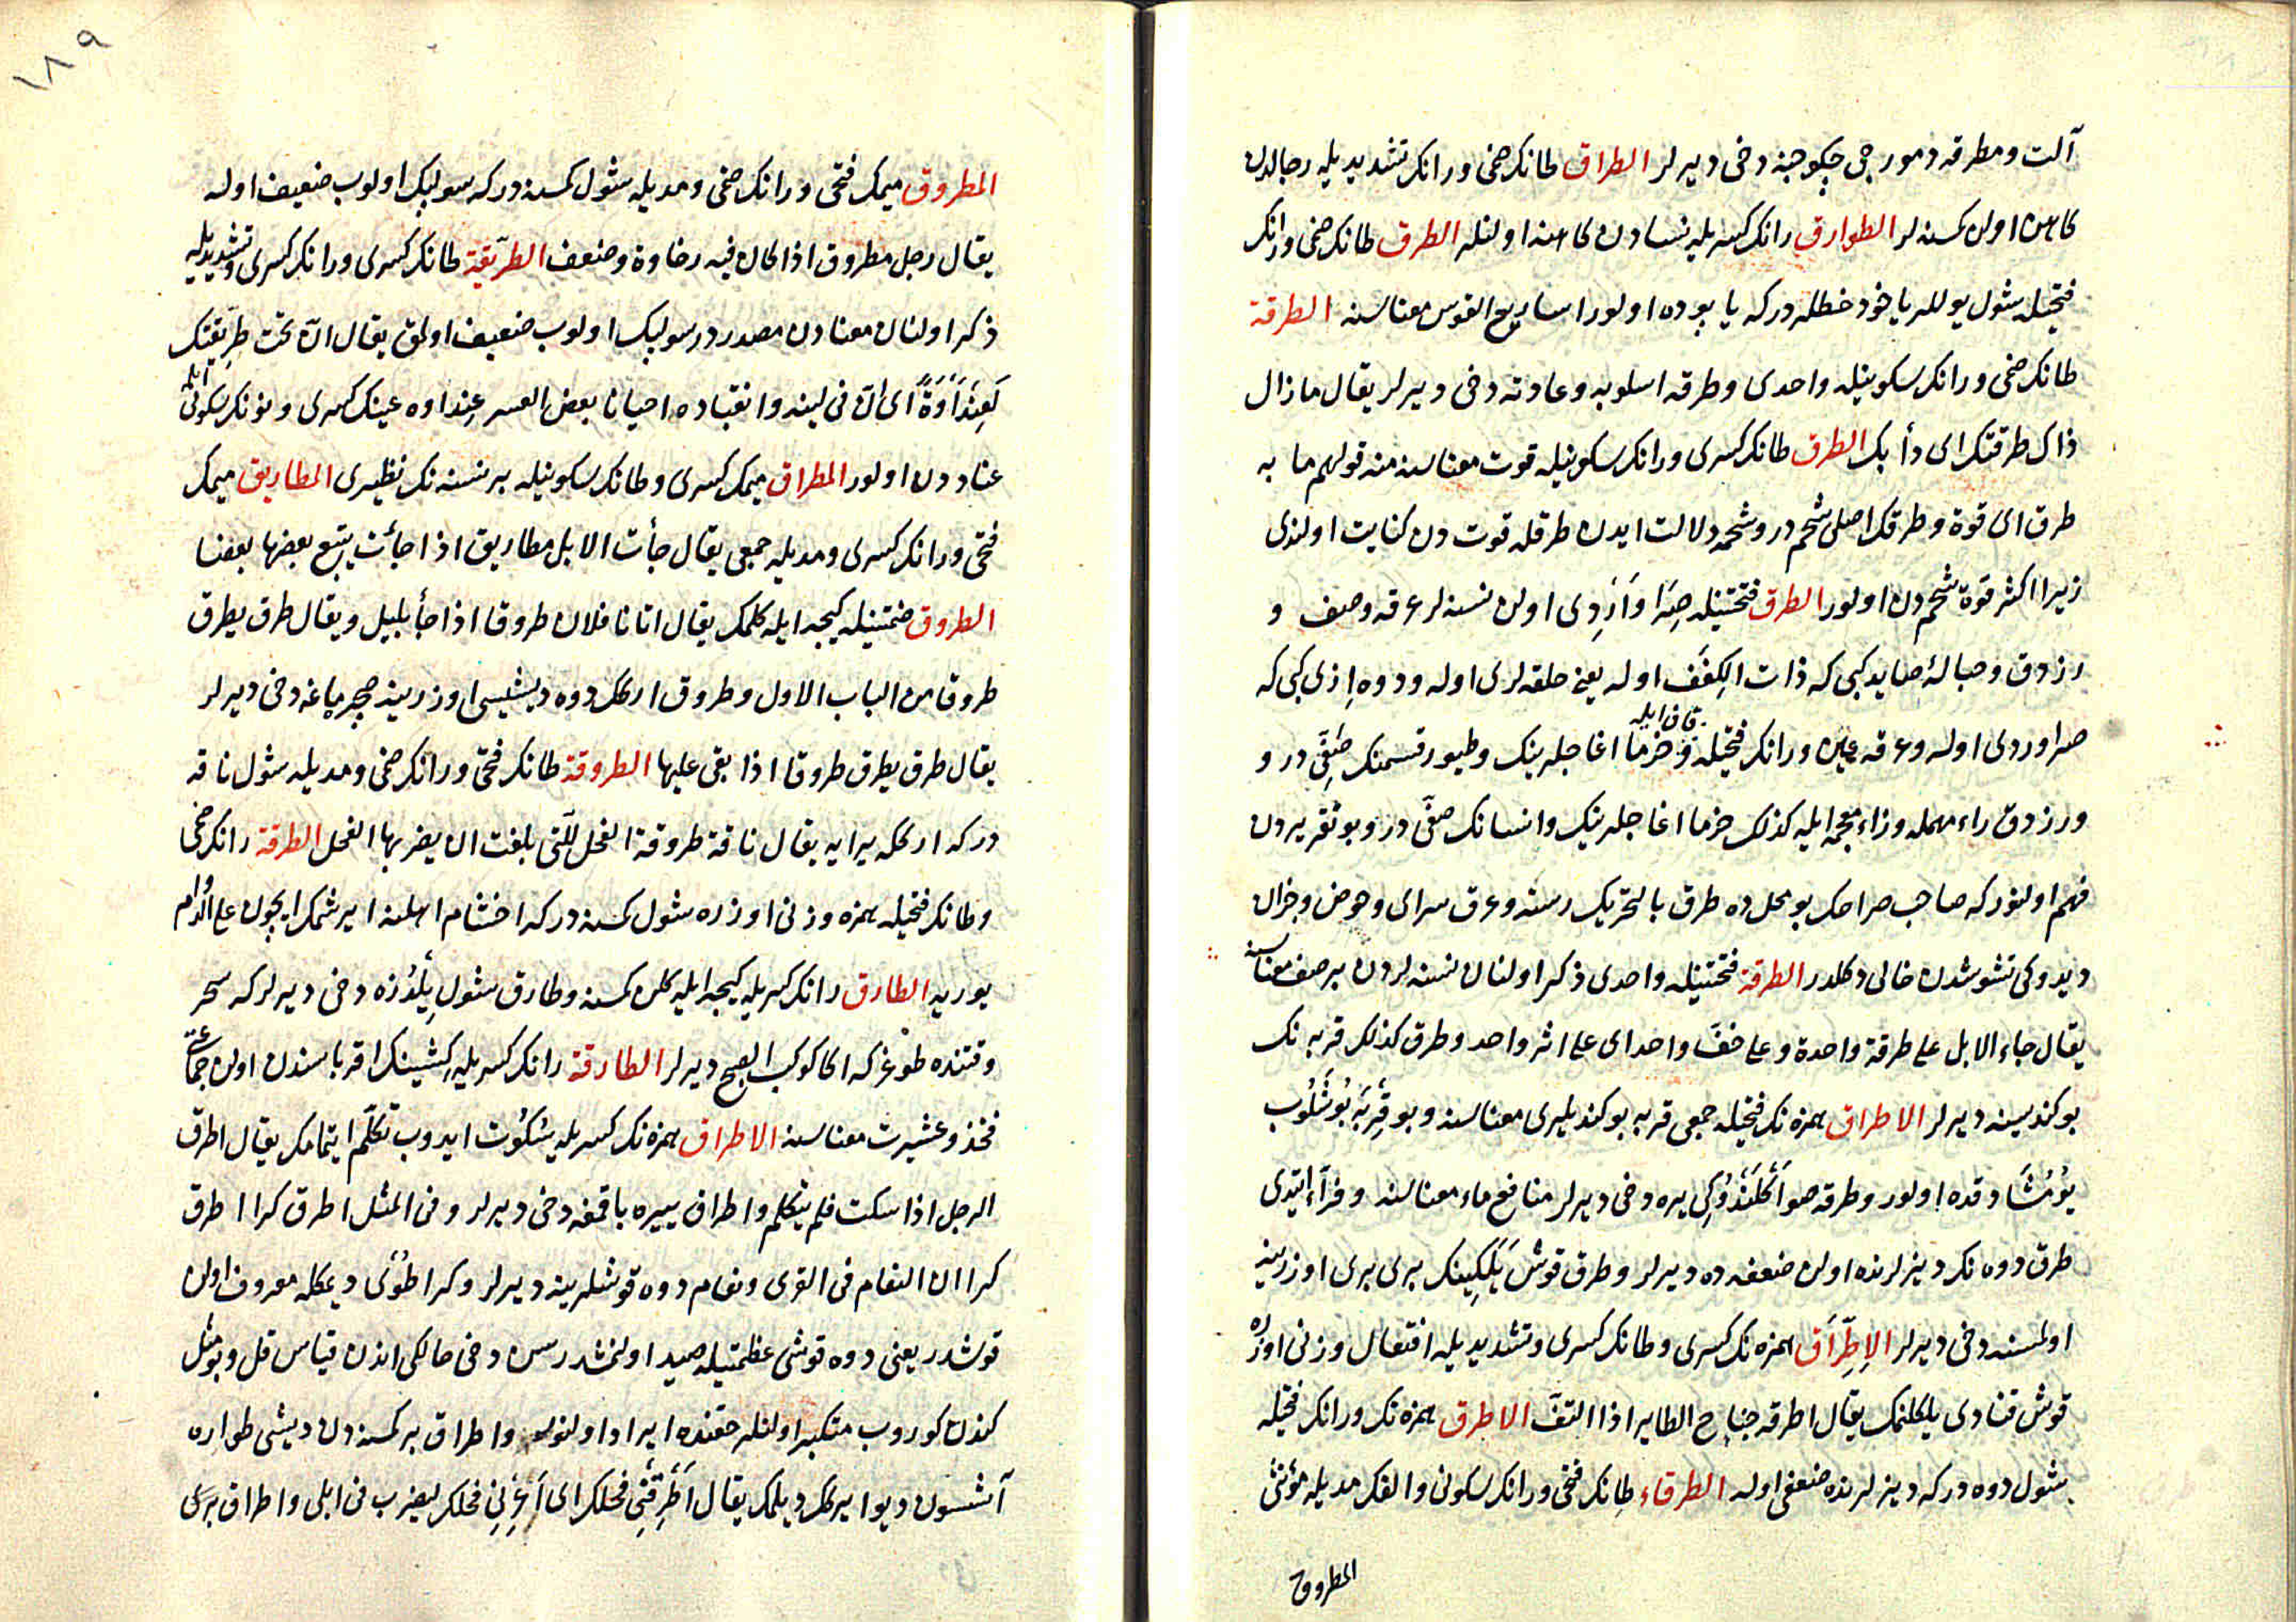 آلت و مطرقه دمورجی چکوجنه دخی دیرلر الطراق طانك ضمی و رانك تشدیدیله رجالدن
كاهن اولن كمسنه لر الطوارق رانك كسریله نسادن كاهنه اولنلر الطرق طانك ضمی و رانك
فتحیله شول یوللر یاخود خطلر دركه یایوده اولور اساریع القوس معناسنه الطرقة
طانك ضمی و رانك سكونیله واحدی و طرقه اسلوبه و عادته دخی دیرلر یقال مازال
ذاك طرقتك ای دأبك الطرق طانك كسری و رانك سكونیله قوت معناسنه منه قولهم ما به
طرق ای قوة و طرقك اصلی شحم در و شحمه دلالت ایدن طرقله قوت دن كنایت اولندی
زیرا اكثر قوة شحم دن اولور الطرق فتحتینله صره و اَرْدی اولن نسنه لر عرقه وصف و
رزدق و حبالۀ صاید كبی كه ذات الكفف اوله یعنی حلقه لری اوله و دوه ایزی كبی كه
صراوردی اوله و عرقه عین و رانك فتحیله و قاف ایله خرما اغاجلرینك و طیور قسمنك صفی در و
ورزدق راء مهمله و زاء معجمه ایله كذلك خرما اغاجلرینك و انسانك صفی در و بو تقریردن
فهم اولنور كه صاحب صراحك بو محل ده طرق بالتحریك رسته و عرق سرای و حوض و جزان
دیدوكی تشوشدن خالی دكلدر الطرقة فتحتینله واحدی ذكر اولنان نسنه لردن بر صف معناسنه
یقال جاء الابل علی طرقة واحدة و علی خف واحد ای علی اثر واحد و طرق كذلك قربه نك
بوكندیسنه دیرلر الاطراق همزه نك فتحیله جمعی قربه بوكندیلری معناسنه و بو قِرْبَه بُوشَلُوب
یُومُشَادقده اولور و طرقه صو اَكْلَنْدُوكی یره دخی دیرلر منافع ماء معناسنه و فرّاء ایتدی
طرق دوه نك دیزلرنده اولن ضعفه ده دیرلر و طرق قوش یَلَكینك بری بری اوزرینه
اولمسنه دخی دیرلر الاِطِّرَاق همزه نك كسری و طانك كسری و تشدیدیله افتعال وزنی اوزره
قوش قنادی یلكلنمك یقال اطرقه جناح الطایر اذا التفّ الاطرق همزه نك و رانك فتحیله
شول دوه دركه دیزلرنده ضعفی اوله الطرقاء طانك فتحی و رانك سكونی و الفك مدیله مؤنثی
المطروق
١٨٩
المطروق میمك فتحی و رانك ضمی و مدیله شول كمسنه دركه سولپك اولوب ضعیف اوله
یقال رجل مطروق اذا كان فیه رخاوة و ضعف الطرّیقة طانك كسری و رانك كسری و تشدیدیله
ذكر اولنان معنادن مصدر در سولپك اولوب ضعیف اولمق یقال انّ تحت طرّیقتك
لَعِنْدَأْوَةً ای انّ فی لینه و انقیاده احیانا بعض العسر عنداوه عینك كسری و نونك سكونی ایله
عناد دن اولور المطراق میمك كسری و طانك سكونیله بر نسنه نك نظیری المطاریق میمك
فتحی و رانك كسری و مدیله جمعی یقال جأت الابل مطاریق اذا جائت یتبع بعضها بعضا
الطروق ضمتینله كیجه ایله كلمك یقال اتانا فلان طروقا اذا جأ بلیل و یقال طرق یطرق
طروق من الباب الاول و طروق اركك دوه دیشیسی اوزرینه صچرپاغه دخی دیرلر
یقال طرق یطرق طروقا اذا بقی علیها الطروقة طانك فتحی و رانك ضمی و مدیله شول ناقه
در كه ارككه یرایه یقال ناقة طروقة الفحل للّتی بلغت ان یضربها الفحل الطرقة رانك ضمی
و طانك فتحیله همزه وزنی اوزره شول كمسنه دركه اخشام اهلنه ایرشمك ایچون علی الدوام
یوریه الطارق رانك كسریله كیجه ایله كلن كمسنه و طارق شول یِلْدُزه دخی دیرلر كه سحر
وقتنده طوغر كه اكا كوكب الصبح دیرلر الطارقة رانك كسریله كشینك اقرباسندن اولن جماعتی
فخذ و عشیرت معناسنه الاطراق همزه نك كسریله سُكُوت ایدوب تَكَلُّم ایتمامك یقال اطرق
الرجل اذا سكت فلم یتكلم و اطراق ییره باقمغه دخی دیرلر و فی المثل اطرق كرا اطرق
كرا ان النعام فی القری و نعام دوه قوشلرینه دیرلر و كرا طُوَی دیمكله معروف اولن
قوشدر یعنی دوه قوشی عظمتیله صید اولنمشدر سن دخی حالكی اندن قیاس قل و بو مثل
كندن كوروب متكبر اولنلر حقنده ایراد اولنور و اطراق بر كمسنه دن دیشی طواره
آشسون دیو ایركك دیلمك یقال اَطْرِقْنی فحلك ای اَعِرْنی فحلك لیضرب فی ابلی و اطراق بری